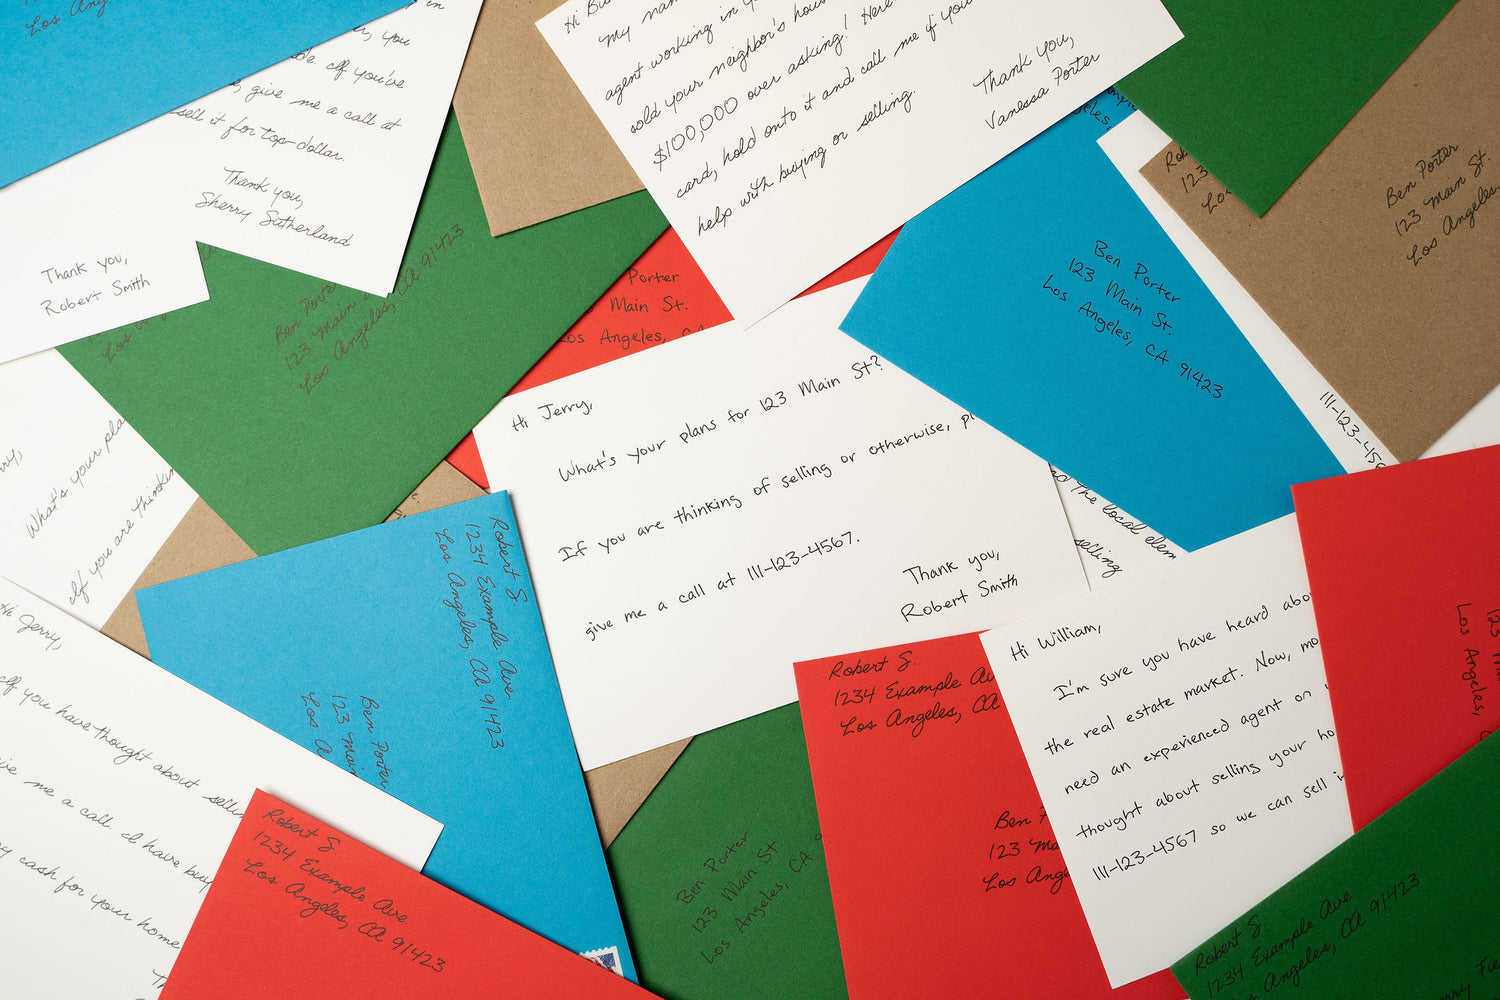 Los Angeles
in
you
If you've
give me a call at
sell it for top-dollar.
Thank you,
Sherry Sutherland
Thank you,
Robert Smith
My nam
agent working in
sold your neighbor's hou
$100,000 over asking! Here
card, hold onto it and call me if you
help with buying or selling.
Thank you,
Vanessa Porter
Ben Porter
123 Main St.
Los Angeles, CA 91423
Ben Porter
123 Main St.
Los Angeles,
123
Los
Ben Porter
123 Main
Los Angeles, CA 91423
Los
Porter
Main St.
Los Angeles, CA
Hi Jerry,
What's your plans for 123 Main St?
If you are thinking of selling or otherwise, pl
give me a call at 111-123-4567.
Thank you,
Robert Smith
111-123-456
the local
selling
What's your pla
If you are thinkin
Hi Jerry,
If you have thought about sellin
me a call. I have buy
cash for your home
Robert S.
1234 Example Ave.
Los Angeles, CA 91423
Ben Porter
123 Main
Los A
Robert S.
1234 Example Ave.
Los Angeles, CA 91423
Ben Porter
123 Main St.
Los Angeles, CA
Robert S.
1234 Example Av
Los Angeles, CA
Ben P
123 Ma
Los Ange
Hi William,
I'm sure you have heard abo
the real estate market. Now, mo
need an experienced agent on
thought about selling your ho
111-123-4567 so we can sell i
123
Los Angeles,
Robert S.
1234 Example Ave
Los Angeles, CA 91423